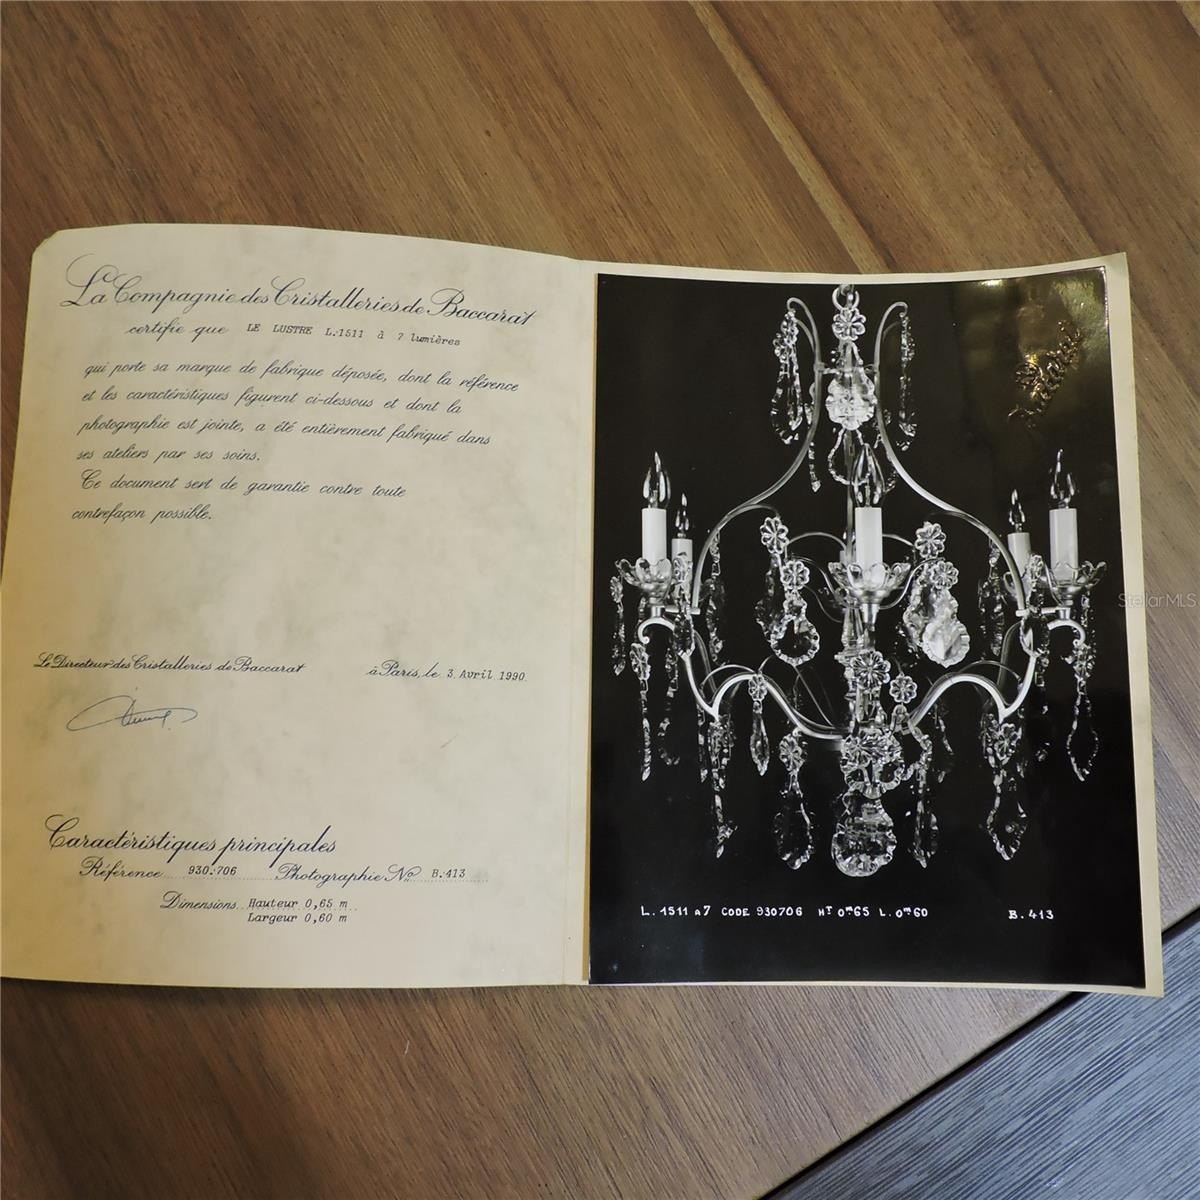 La Compagnie des Cristalleries de Baccarat
certifie que LE LUSTRE L.1511 à 7 lumières
qui porte sa marque de fabrique déposée, dont la référence
et les caractéristiques figurent ci-dessous et dont la
photographie est jointe, a été entièrement fabriqué dans
ses ateliers par ses soins.
Ce document sert de garantie contre toute
contrefaçon possible.
Le Directeur des Cristalleries de Baccarat à Paris, le 3 Avril 1990
Caractéristiques principales
Référence 930.706 Photographie No B.413
Dimensions Hauteur 0,65 m
Largeur 0,60 m
L. 1511 A 7 CODE 930706 HT 0m65 L. 0m60 B. 413
StellarMLS